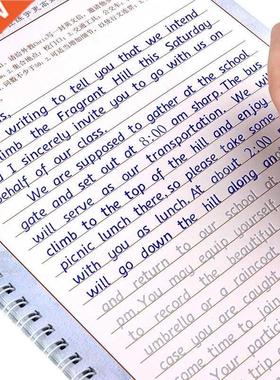 writing to tell you that we intend
climb the Fragrant Hill this Saturday
I sincerely invite you to go with us on
behalf of our class.
We are supposed to gather at the school
gate and set out at 8:00 am sharp. The bus
will serve as our transportation. We will
climb to the top of the hill and enjoy
picnic lunch there, so please take some
with you as lunch. At about 2:00
will go down the hill along
and return to our school at
pm. You may equip yourself
to record the beautiful
umbrella or a raincoat
case you are caught
some time to join
Your part
trip